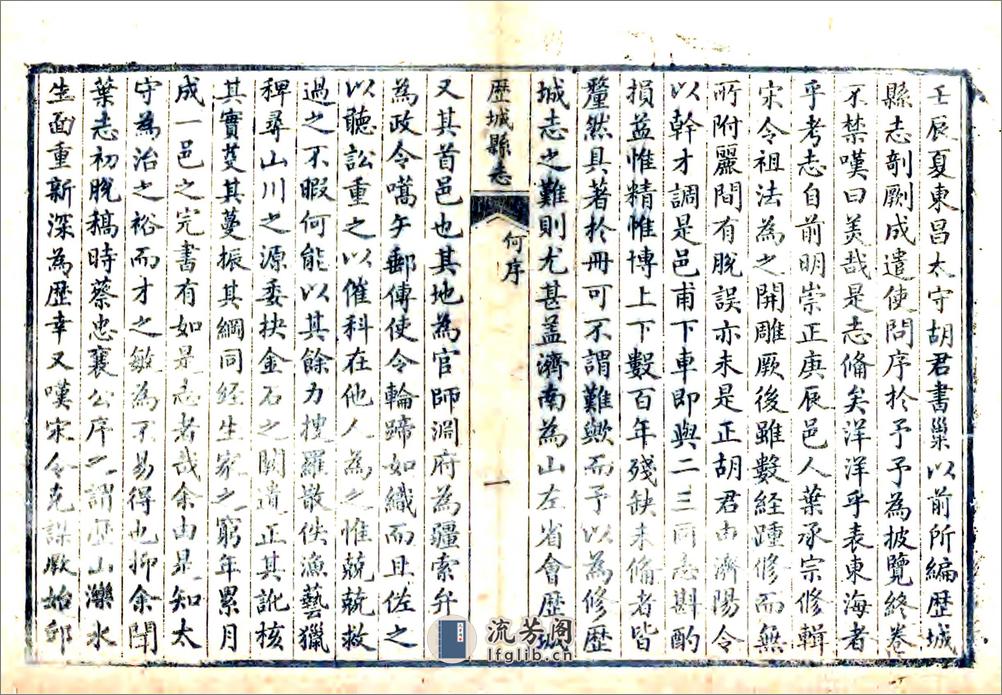 壬辰夏東昌太守胡君書巢以前所編歷城
縣志剞劂成遣使問序於予予為披覽終卷
不禁嘆曰美哉是志脩矣洋洋乎表東海者
乎考志自前明崇正庚辰邑人葉承宗修輯
宋令祖法為之開雕厥後雖數經踵修而無
所附麗間有脫誤亦未是正胡君由濟陽令
以幹才調是邑甫下車即與二三同志斟酌
損益惟精惟博上下數百年殘缺未脩者皆
釐然具著於冊可不謂難歟而予以為修歷
城志之難則尤甚蓋濟南為山左省會歷城
歷城縣志
何序
一
又其首邑也其地為官師淵府為疆索弁
為政令嚆矢郵傳使令輪蹄如織而且佐之
以聽訟重之以催科在他人為之惟兢兢救
過之不暇何能以其餘力搜羅散佚漁藝獵
稗尋山川之源委抉金石之闕遺正其訛核
其實芟其蔓振其綱同經生家之窮年累月
成一邑之完書有如是志者哉余由是知太
守為治之裕而才之敏為不易得也抑余聞
葉志初脫稿時蔡忠襄公序之謂歷山濼水
生面重新深為歷幸又嘆宋令克謀厥始邱
流芳阁
lfglib.cn